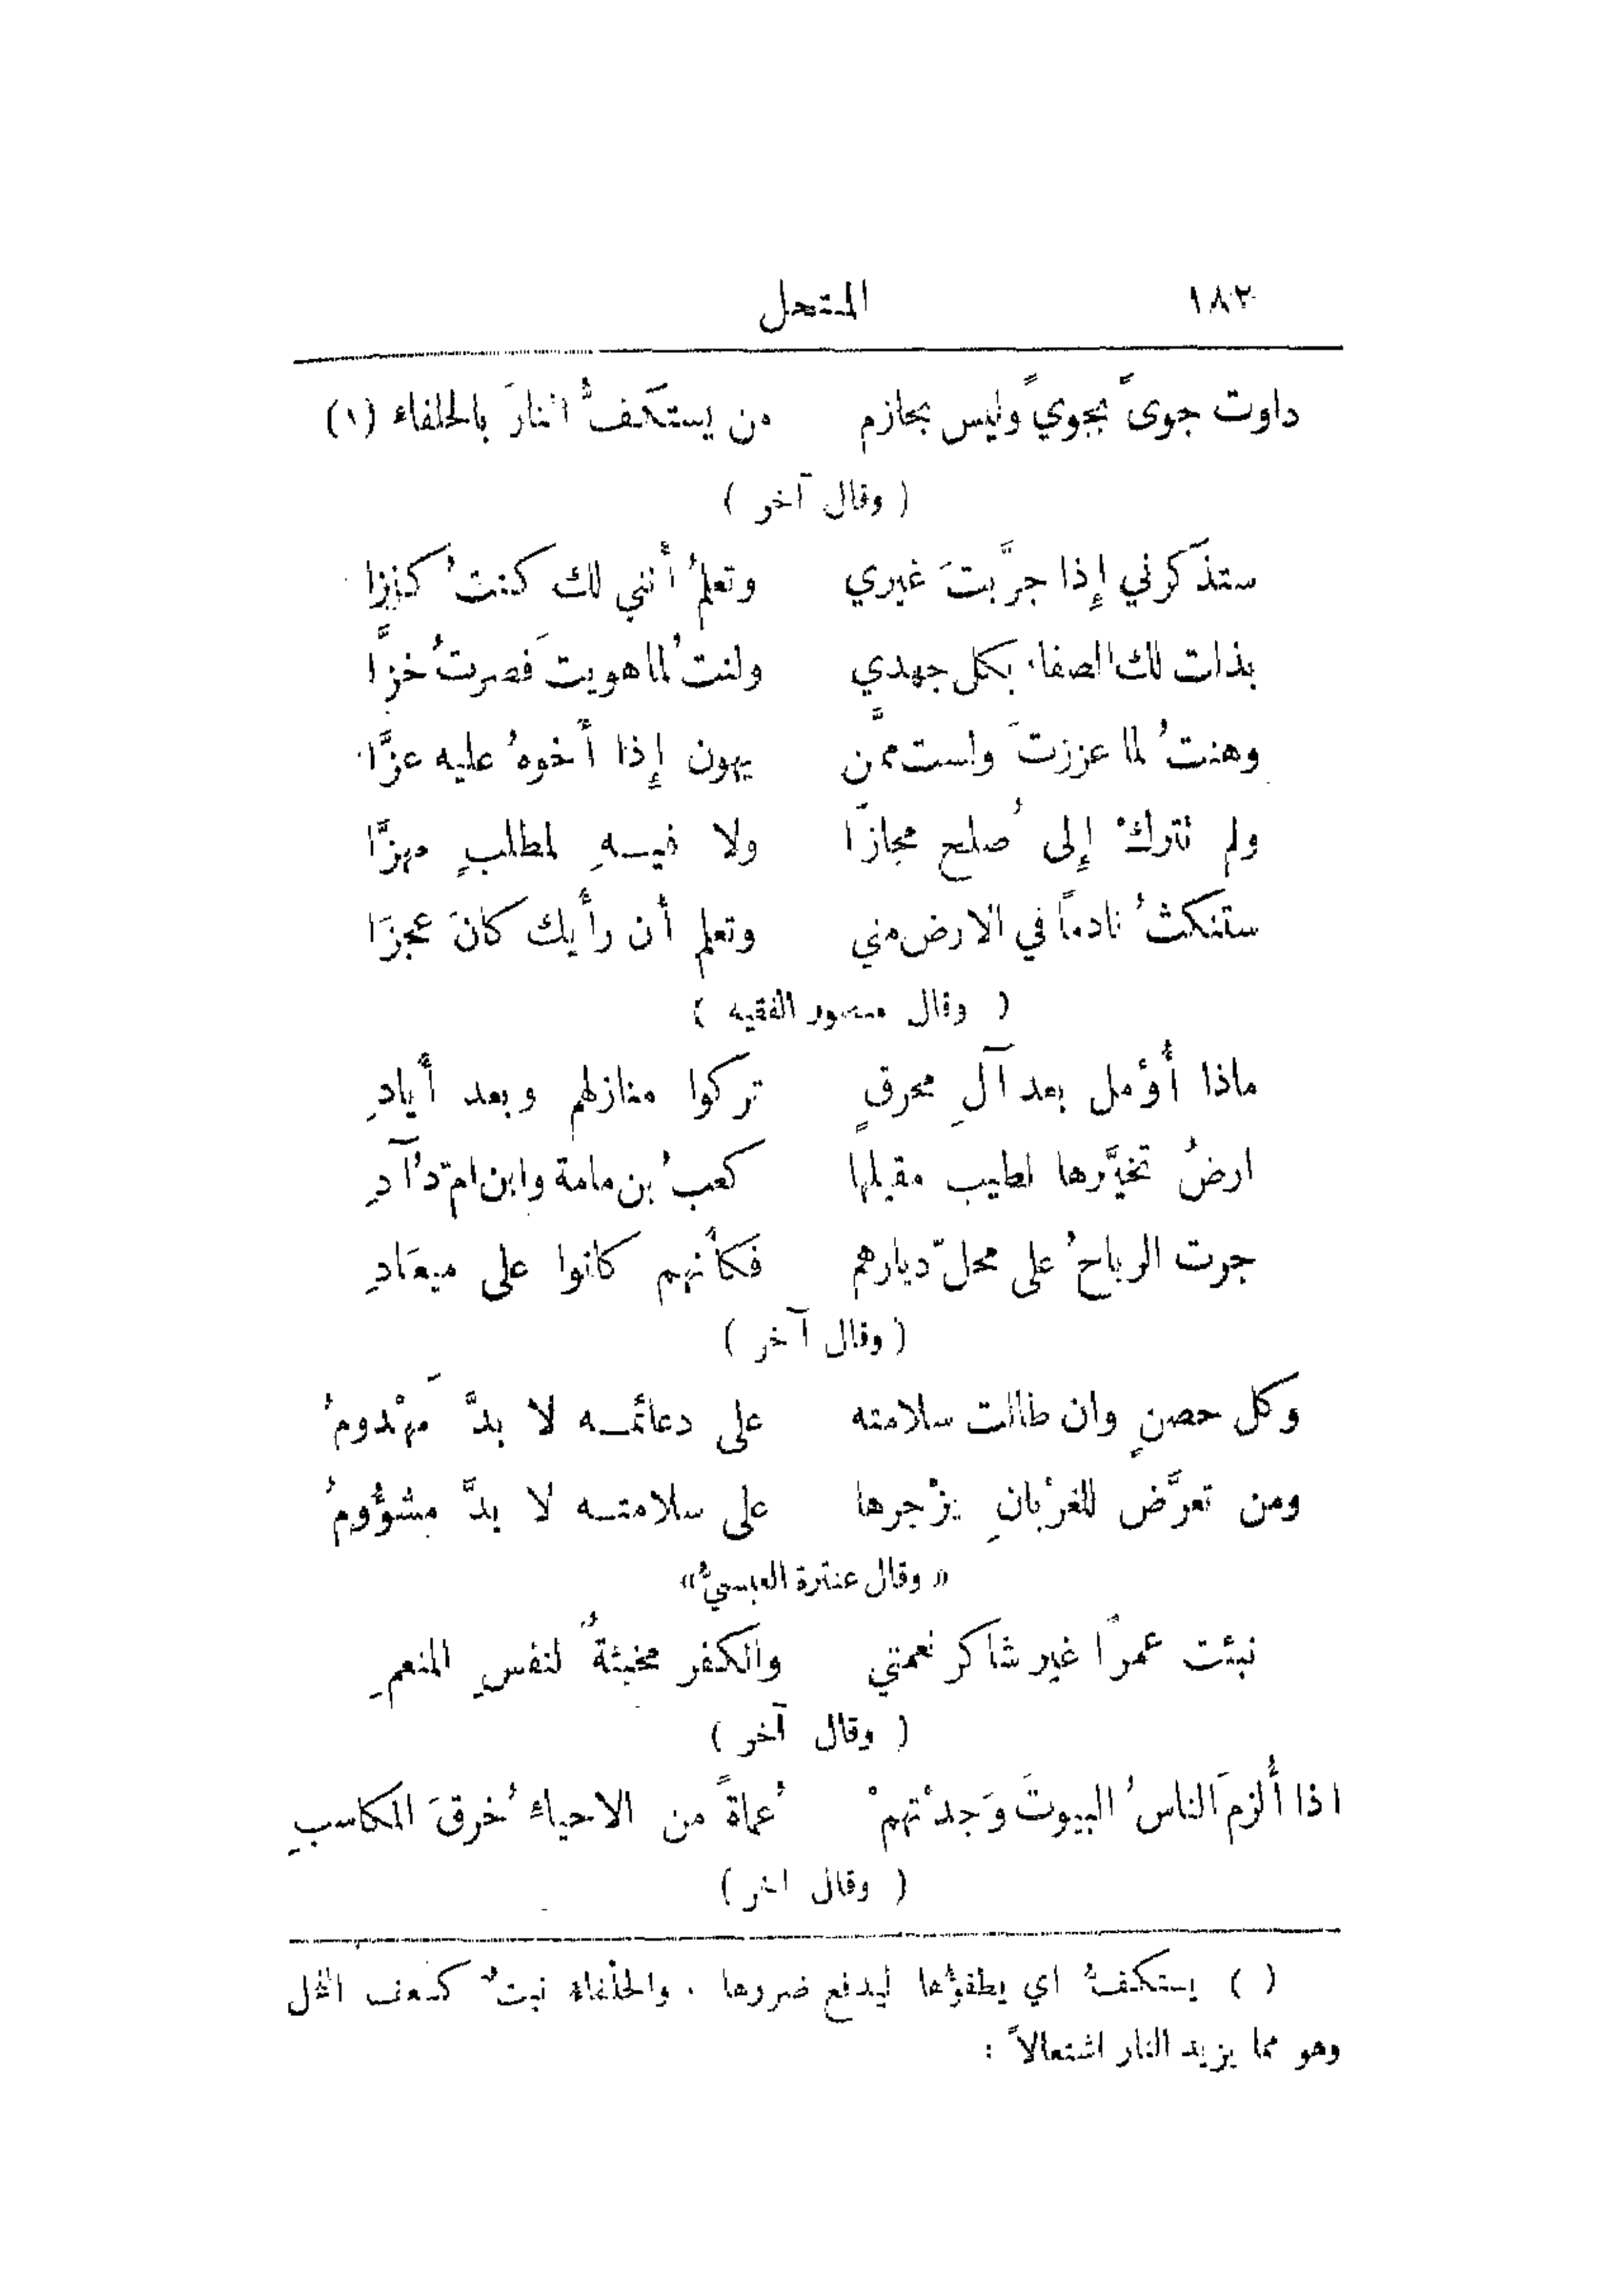 ١٨٢ المنتحل
داوت جوىً بجويً وليس بحازم من يستكفُّ النارَ بالحلفاء (١)
( وقال آخر )
ستذكرني إِذا جرَّبتَ غيري وتعلمُ أنني لك كنتُ كنزا
بذات لك الصفاء بكل جهدي ولنتُ لما هويتَ فصرتُ خزَّا
وهنتُ لما عززتَ ولست ممَّن يهون إِذا أخوهُ عليه عزَّا
ولم تتركْ إِلى صُلح مجازًا ولا فيــهِ لمطلبٍ مهزَّا
ستنكثُ نادماً في الارض مني وتعلم أن رأيك كانَ عجزَا
( وقال منصور الفقيه )
ماذا أُؤمل بعد آلِ محرقٍ تركوا منازلهم وبعد أيادِ
ارضُ تخيَّرها لطيب مقيلها كعبُ بن مامة وابن امّ دُآدِ
جرت الرياحُ على محلّ ديارهم فكأنهم كانوا على ميعَادِ
( وقال آخر )
وكل حصنٍ وان طالت سلامته على دعائمــه لا بدَّ مَهْدومُ
ومن تعرَّض للغرْبانِ يزْجرها على سلامتــه لا بدَّ مشؤُومُ
« وقال عنترة العبسيُّ »
نبئت عمرًا غير شاكر نعمتي والكفر مخبثةٌ لنفسِ المنعمِ
( وقال آخر )
اذا أُلزمَ الناسُ البيوتَ وَجدْتهمْ عُماةً من الاحياء خُرقَ المكاسبِ
( وقال اخر )
( ) يستكفُّ اي يطفؤُها ليدفع ضررها . والحلفاء نبتٌ كسعف النخل
وهو مما يزيد النار اشتعالاً :